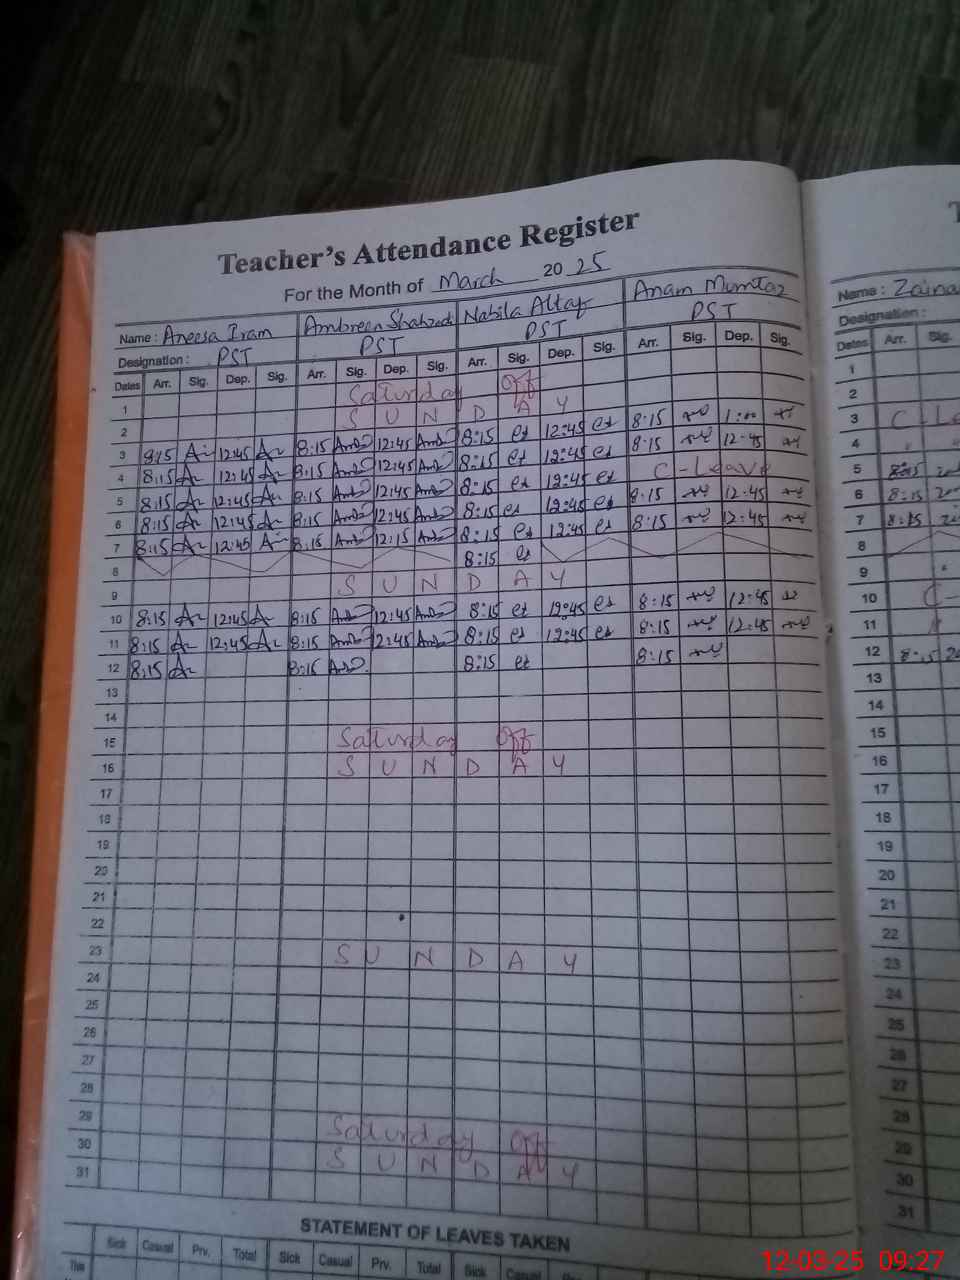 Teacher's Attendance Register
For the Month of March 20 25
Name : Aneesa Iram Ambreen Shahzadi Nabila Altaf Anam Mumtaz
Designation : PST PST PST PST
Dates Arr. Sig. Dep. Sig. Arr. Sig. Dep. Sig. Arr. Sig. Dep. Sig. Arr. Sig. Dep. Sig.
1 Saturday Off
2 S U N D A Y
3 8:15 12:45 8:15 12:45 8:15 12:45 8:15 1:00
4 8:15 12:45 8:15 12:45 8:15 12:45 8:15 12:45
5 8:15 12:45 8:15 12:45 8:15 12:45 C-Leave
6 8:15 12:45 8:15 12:45 8:15 12:45 8:15 12:45
7 8:15 12:45 8:15 12:15 8:15 12:45 8:15 12:45
8 8:15
9 S U N D A Y
10 8:15 12:45 8:15 12:45 8:15 12:45 8:15 12:45
11 8:15 12:45 8:15 12:45 8:15 12:45 8:15 12:45
12 8:15 8:15 8:15 8:15
13
14
15 Saturday Off
16 S U N D A Y
17
18
19
20
21
22
23 S U N D A Y
24
25
26
27
28
29 Saturday Off
30 S U N D A Y
31
STATEMENT OF LEAVES TAKEN
Sick Casual Prv. Total Sick Casual Prv. Total Sick Casual
This
T
Name : Zaina
Designation :
Dates Arr. Sig.
1
2
3 C-Le
4
5 8:15
6 8:15
7 8:15
8
9
10 C-
11
12 8:15
13
14
15
16
17
18
19
20
21
22
23
24
25
26
27
28
29
30
31
12-03-25 09:27